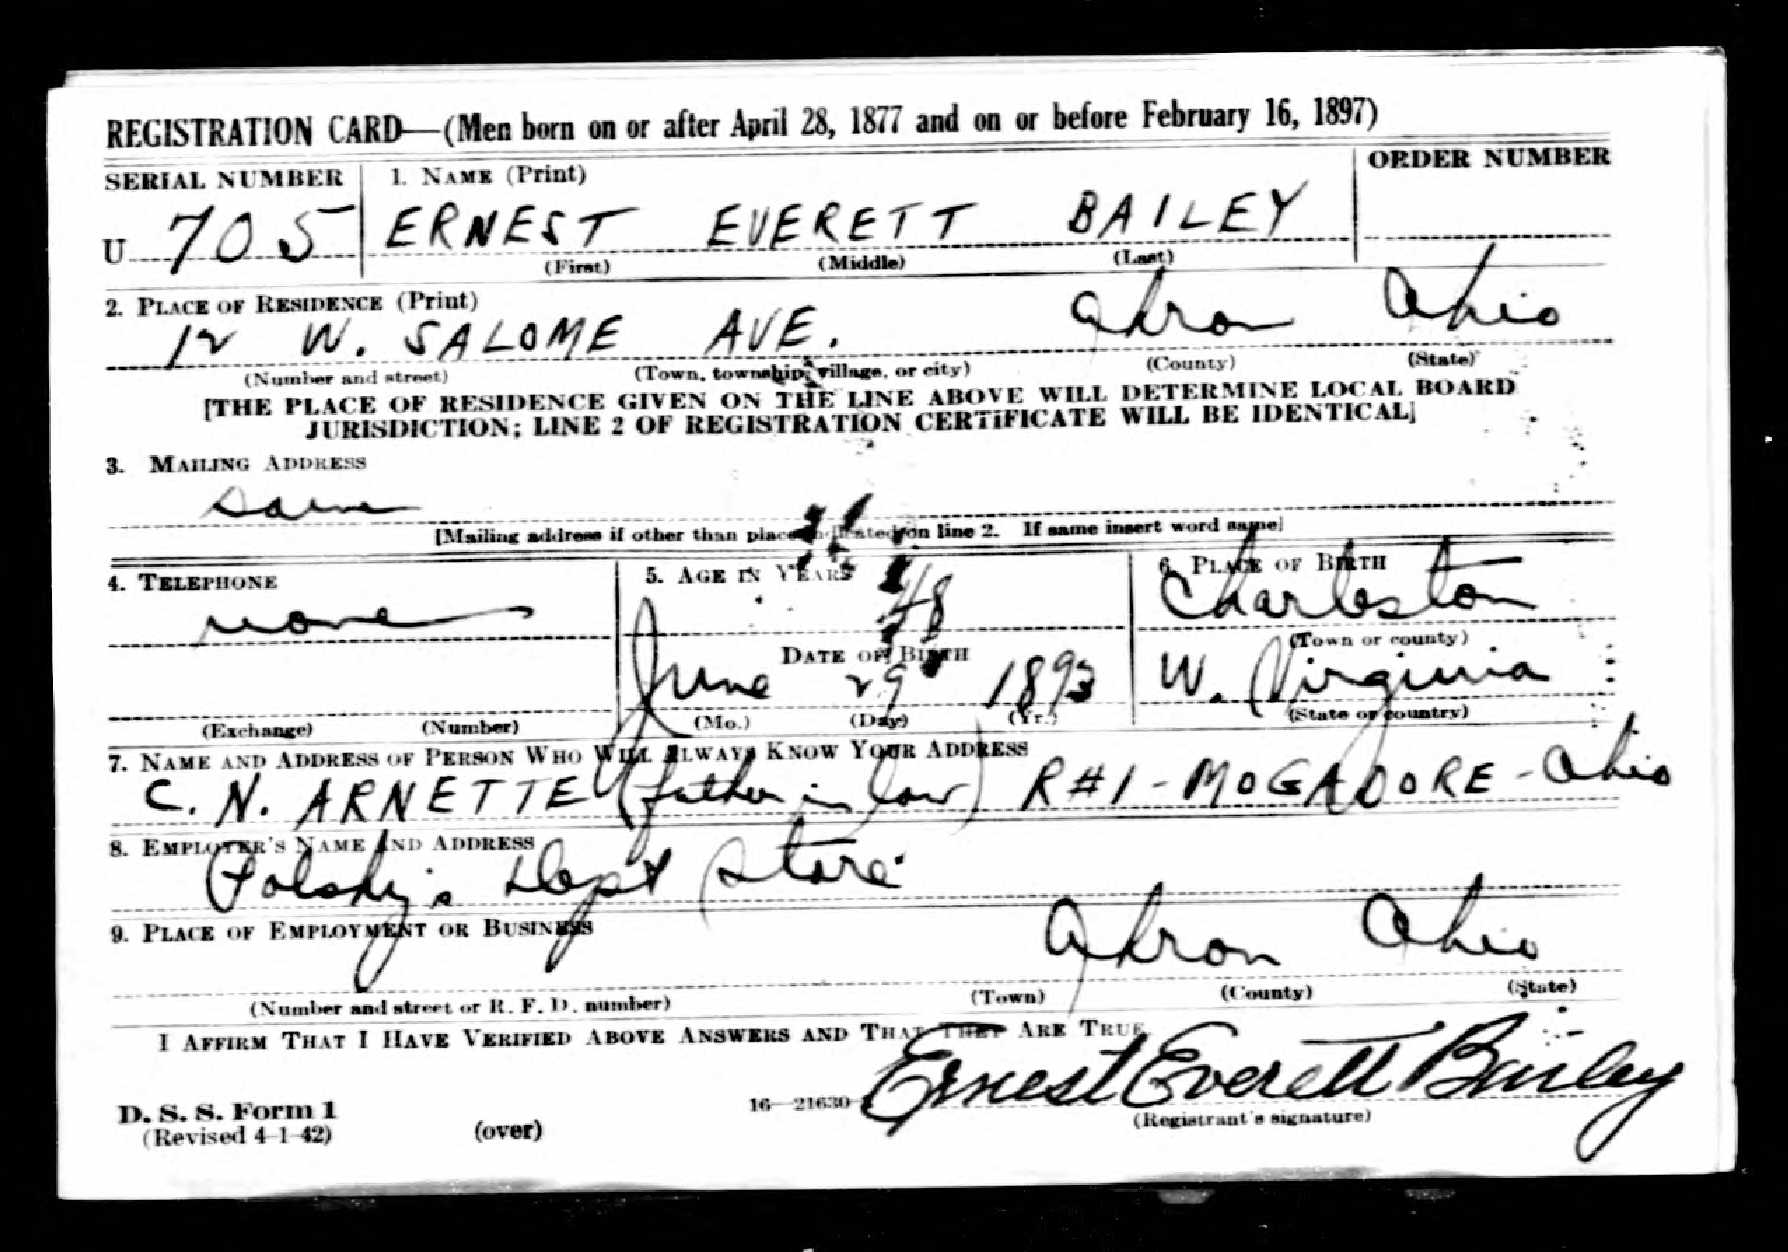 REGISTRATION CARD—(Men born on or after April 28, 1877 and on or before February 16, 1897)
SERIAL NUMBER 1. NAME (Print) ORDER NUMBER
U 705 ERNEST EVERETT BAILEY
(First) (Middle) (Last)
2. PLACE OF RESIDENCE (Print)
12 W. SALOME AVE. Akron Ohio
(Number and street) (Town, township, village, or city) (County) (State)
[THE PLACE OF RESIDENCE GIVEN ON THE LINE ABOVE WILL DETERMINE LOCAL BOARD
JURISDICTION; LINE 2 OF REGISTRATION CERTIFICATE WILL BE IDENTICAL]
3. MAILING ADDRESS
same
[Mailing address if other than place indicated on line 2. If same insert word same]
4. TELEPHONE 5. AGE IN YEARS 6. PLACE OF BIRTH
none 48 Charleston
(Town or county)
DATE OF BIRTH
June 29 1893 W. Virginia
(Exchange) (Number) (Mo.) (Day) (Yr.) (State or country)
7. NAME AND ADDRESS OF PERSON WHO WILL ALWAYS KNOW YOUR ADDRESS
C. N. ARNETTE (father in law) R#1-MOGADORE-Ohio
8. EMPLOYER'S NAME AND ADDRESS
Polsky's Dept Store
9. PLACE OF EMPLOYMENT OR BUSINESS
Akron Ohio
(Number and street or R. F. D. number) (Town) (County) (State)
I AFFIRM THAT I HAVE VERIFIED ABOVE ANSWERS AND THAT THEY ARE TRUE.
Ernest Everett Bailey
D. S. S. Form 1 16—21630 (Registrant's signature)
(Revised 4-1-42) (over)